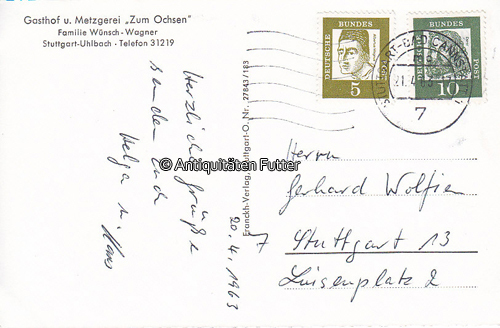 Gasthof u. Metzgerei „Zum Ochsen"
Familie Wünsch-Wagner
Stuttgart-Uhlbach - Telefon 31219
Herzliche Grüße
senden Euch
Helga u. Hans
20.4.1963
Franckh-Verlag, Stuttgart-O. Nr. 27843/183
DEUTSCHE BUNDES POST
5
DEUTSCHE BUNDES POST
10
STUTTGART-BAD CANNSTATT
7
Herrn
Gerhard Wolfien
7 Stuttgart 13
Luisenplatz 2
© Antiquitäten Futter